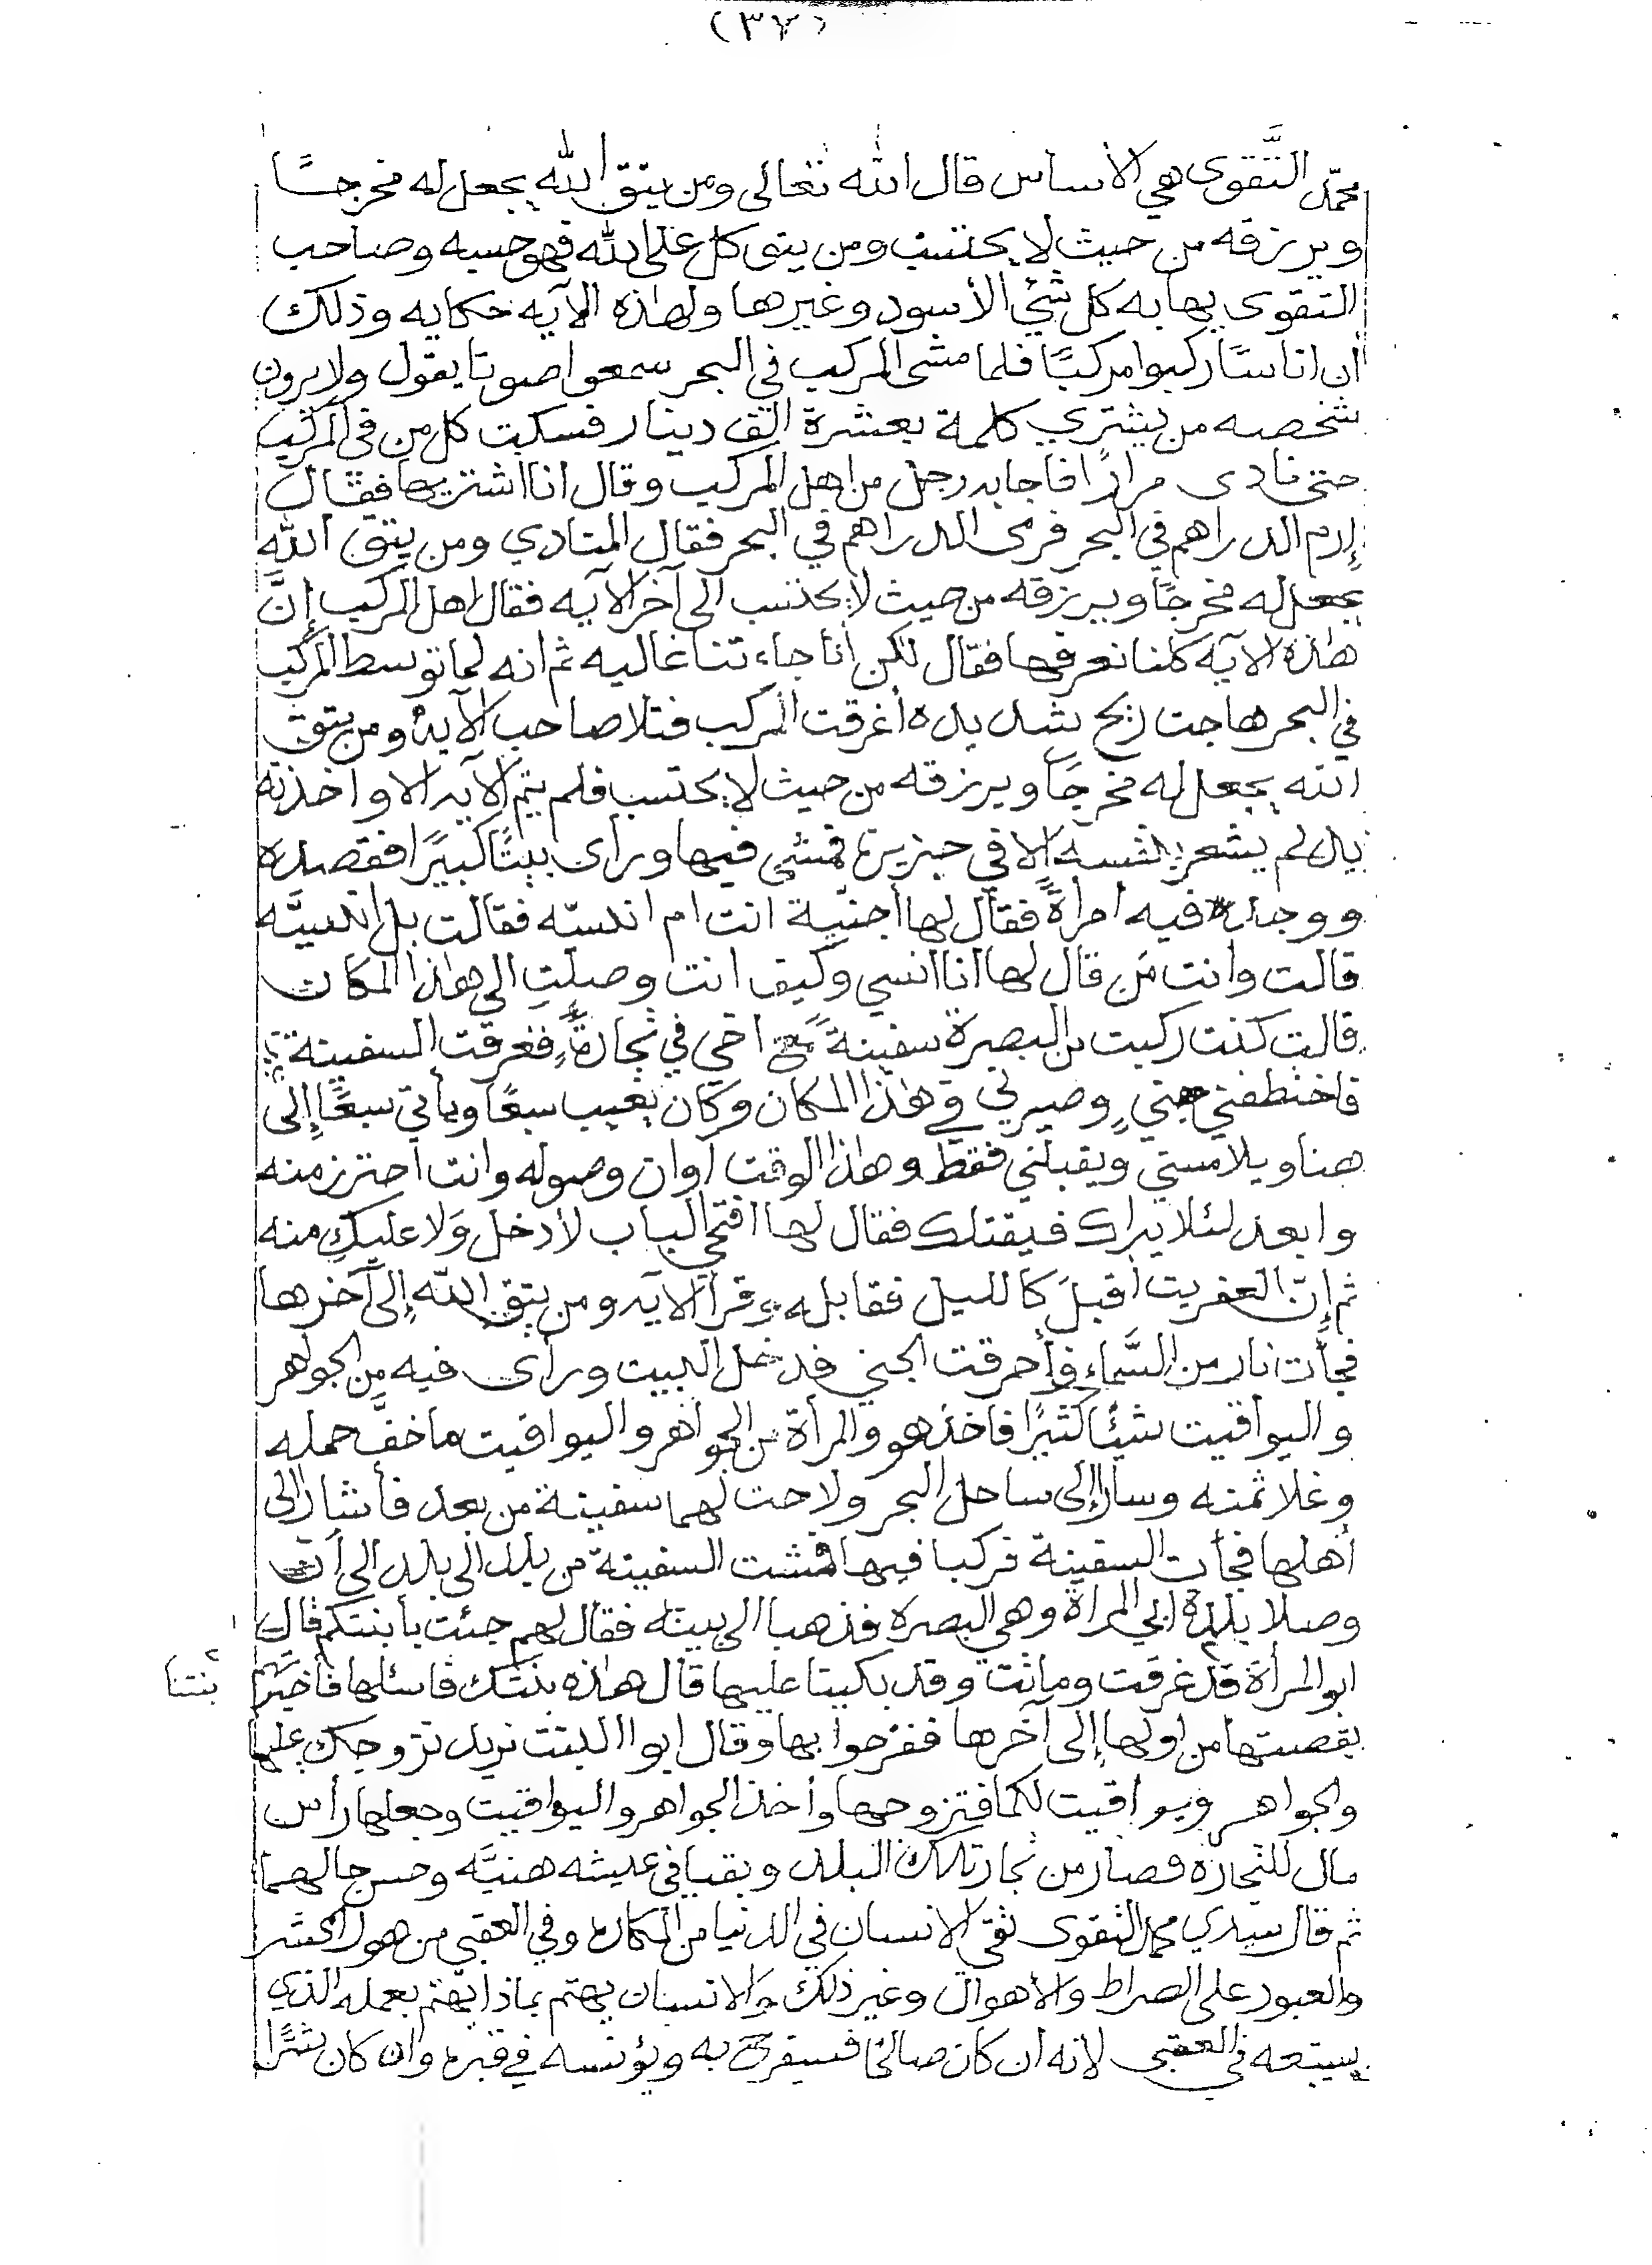 (٣٧)
محمد التَّقوى هي الأساس قال الله تعالى ومن يتق الله يجعل له مخرجًا
ويرزقه من حيث لا يحتسب ومن يتوكل على الله فهو حسبه وصاحب
التقوى يهابه كل شئ الأسود وغيرها ولهذه الآيه حكايه وذلك
أن اناسًا ركبوا مركبًا فلما مشى المركب في البحر سمعوا صوتا يقول ولا يرون
شخصه من يشتري كلمة بعشرة الف دينار فسكت كل من في المركب
حتى نادى مرارًا فاجابه رجل من اهل المركب وقال انا اشتريها فقال
إرم الدراهم في البحر فرمى الدراهم في البحر فقال المنادي ومن يتق الله
يجعل له مخرجًا ويرزقه من حيث لا يحتسب الى آخر الآيه فقال اهل المركب إنَّ
هذه الآيه كلنا نعرفها فقال لكن أنا جاءتنا غاليه ثم انه لما توسط المركب
في البحر هاجت ريح شديده أغرقت المركب فتلا صاحب الآيه ومن يتق
الله يجعل له مخرجًا ويرزقه من حيث لا يحتسب فلم يتم الآيه الا واخذته
لم يشعر بنفسه الا في جزيرة فمشى فيها ورأى بيتًا كبيرًا فقصده
ووجد فيه امرأةً فقال لها أجنيّة انت ام انسيّه فقالت بل انسيَّه
قالت وانت مَن قال لها انا انسي وكيف انت وصلتِ الى هذا المكان
قالت كنت ركبت من البصرة سفينةً مع اخي في تجارةٍ فغرقت السفينة
فاختطفني جني وصيرني في هذا المكان وكان يغيب سبعًا ويأتي سبعًا إلى
هنا ويلامسني ويقبلني فقط وهذا الوقت أوان وصوله وانت احترز منه
وابعد لئلا يراك فيقتلك فقال لها افتحي الباب لأدخل وَلا عليكِ منه
ثم إنّ العفريت اقبلَ كالليل فقابله وقرأ الآيه ومن يتق الله إلى آخرها
فجأت نار من السَّماء فأحرقت الجني فدخل البيت ورأى فيه مِن الجواهر
واليواقيت شيئًا كثيرًا فاخذ هو والمرأة من الجواهر واليواقيت ما خفَّ حمله
وغلا ثمنه وسارا إلى ساحل البحر ولاحت لهما سفينة من بعد فأشارا الى
أهلها فجأت السفينة فركبا فيها فمشت السفينة من بلد الى بلد الى أن
وصلا بلدة ابي المرأة وهي البصره فذهبا الى بيته فقال لهم جئت بأبنتكم قال
ابو المرأة قد غرقت وماتت وقد بكينا عليها قال هذه بنتك فاسئلها فأخبرتهم
بنتنا
بقصتها من اولها إلى آخرها ففرحوا بها وقال ابوا البنت نريد تزوجك عليها
والجواهر ويواقيت لكما فتزوجها وأخذ الجواهر واليواقيت وجعلها رأس
مال للتجاره وصار من تجار تلك البلد وبقيا في عيشه هنيَّه وحسن حالهما
ثم قال سيدي محمد التقوى تقي الانسان في الدنيا من المكاره وفي العقبى من هول المحشر
والعبور على الصراط والأهوال وغير ذلك والانسان يهتم بماذا يهتم بعمله الذي
يتبعه في العقبى لانه ان كان صالحًا فسيفرح به ويؤنسه في قبره وان كان شرًّا